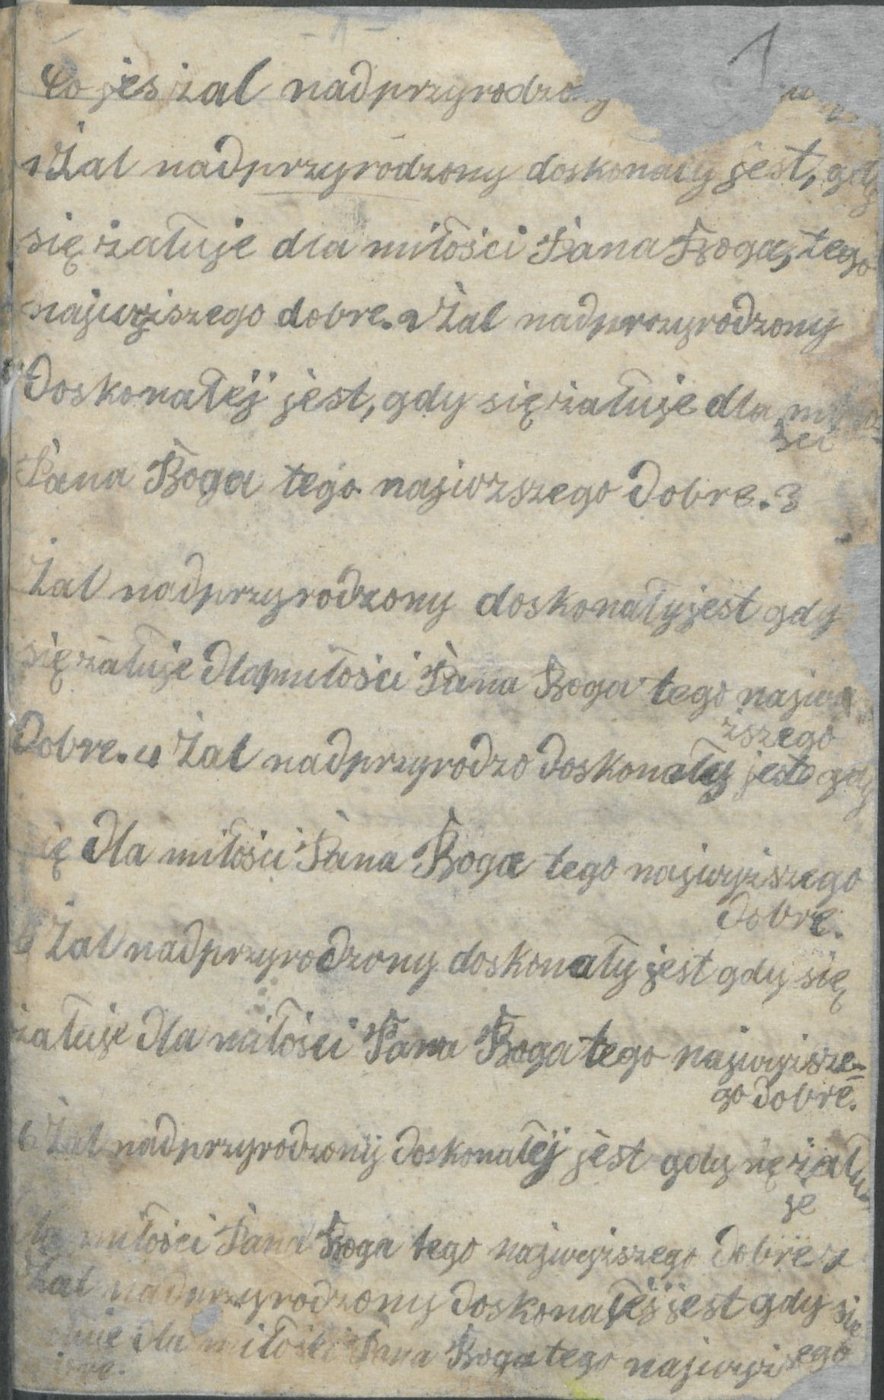 1
Co jes żal nadprzyrodzony
1 Żal nadprzyrodzony doskonały jest, gdy
się żałuje dla miłości Pana Boga, tego
najwyiszego dobre. 2 Żal nadprozyrodzony
Doskonałej jest, gdy się żałuje dla miło=
ści
Pana Boga tego najwzszego Dobre. 3
Żal nadprzyrodzony doskonały jest gdy
się żałuje Dla miłości Pana Boga tego najw
zszego
Dobre. 4 Żal nadprzyrodzo Doskonały jest gdy
się Dla miłości Pana Boga tego najwyiszego
Dobre.
Żal nadprzyrodzony doskonały jest gdy się
żałuje Dla miłości Pana Boga tego najwyisze=
go Dobre.
6 Żal nadprzyrodzonÿ Doskonałej jest gdy się żału
je
miłości Pana Boga tego najwyiszego Dobre 7
Żal nadprzyrodzony Doskonałej jest gdy się
Dla miłości Pana Boga tego najwyiszego